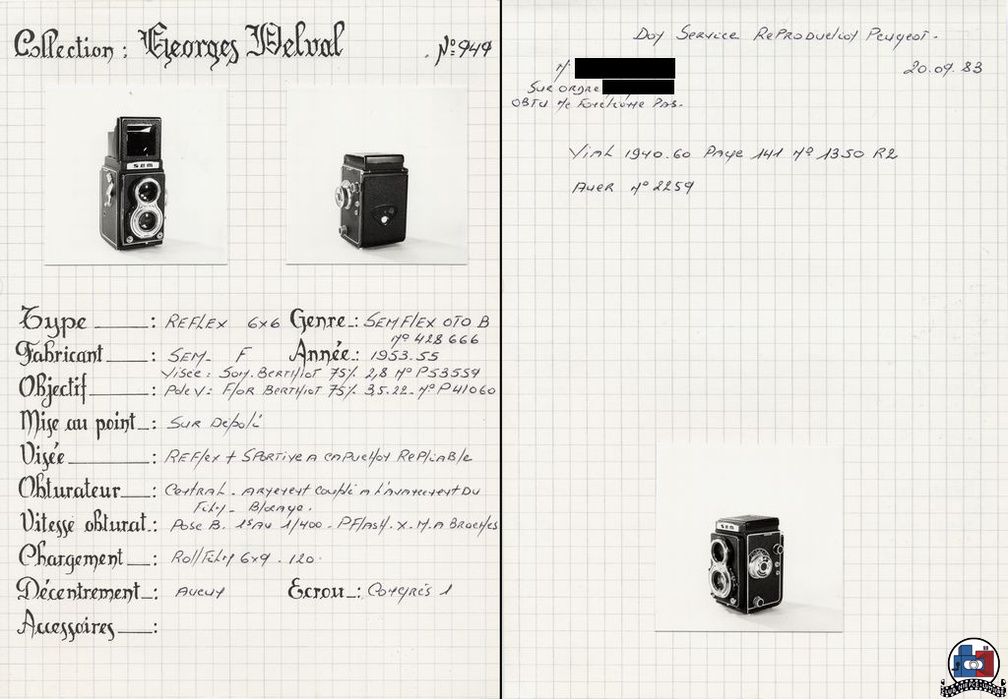 Collection : Georges Delval
N° 949
SEM
Type : REFLEX 6x6 Genre : SEMFLEX OTO B
N° 428666
Fabricant : SEM. F Année : 1953.55
Visée : SOM. BERTHIOT 75% 2,8 N° P53559
Objectif : PdeV : FLOR BERTHIOT 75% 3,5.22. N° P41060
Mise au point : SUR Dépoli
Visée : REFlex + SPORTIVE A CAPUCHON RePLIABLE
Obturateur : CENTRAL. ARMEMENT Couplé A L'AVANCEMENT DU
FILM - Blocage.
Vitesse obturat. : Pose B. 1s AU 1/400. PFlash. X.M. A BROCHES
Chargement : Roll Film 6x9 . 120.
Décentrement : AUCUN Ecrou : CONGRÈS 1
Accessoires :
DON SERVICE REPRODUCTION PEUGEOT.
20.09.83
M.
SUR ORDRE
OBTU Ne Fonctionne PAS.
VIAL 1940.60 PAGE 141 N° 1350 R2
AUER N° 2259
SEM